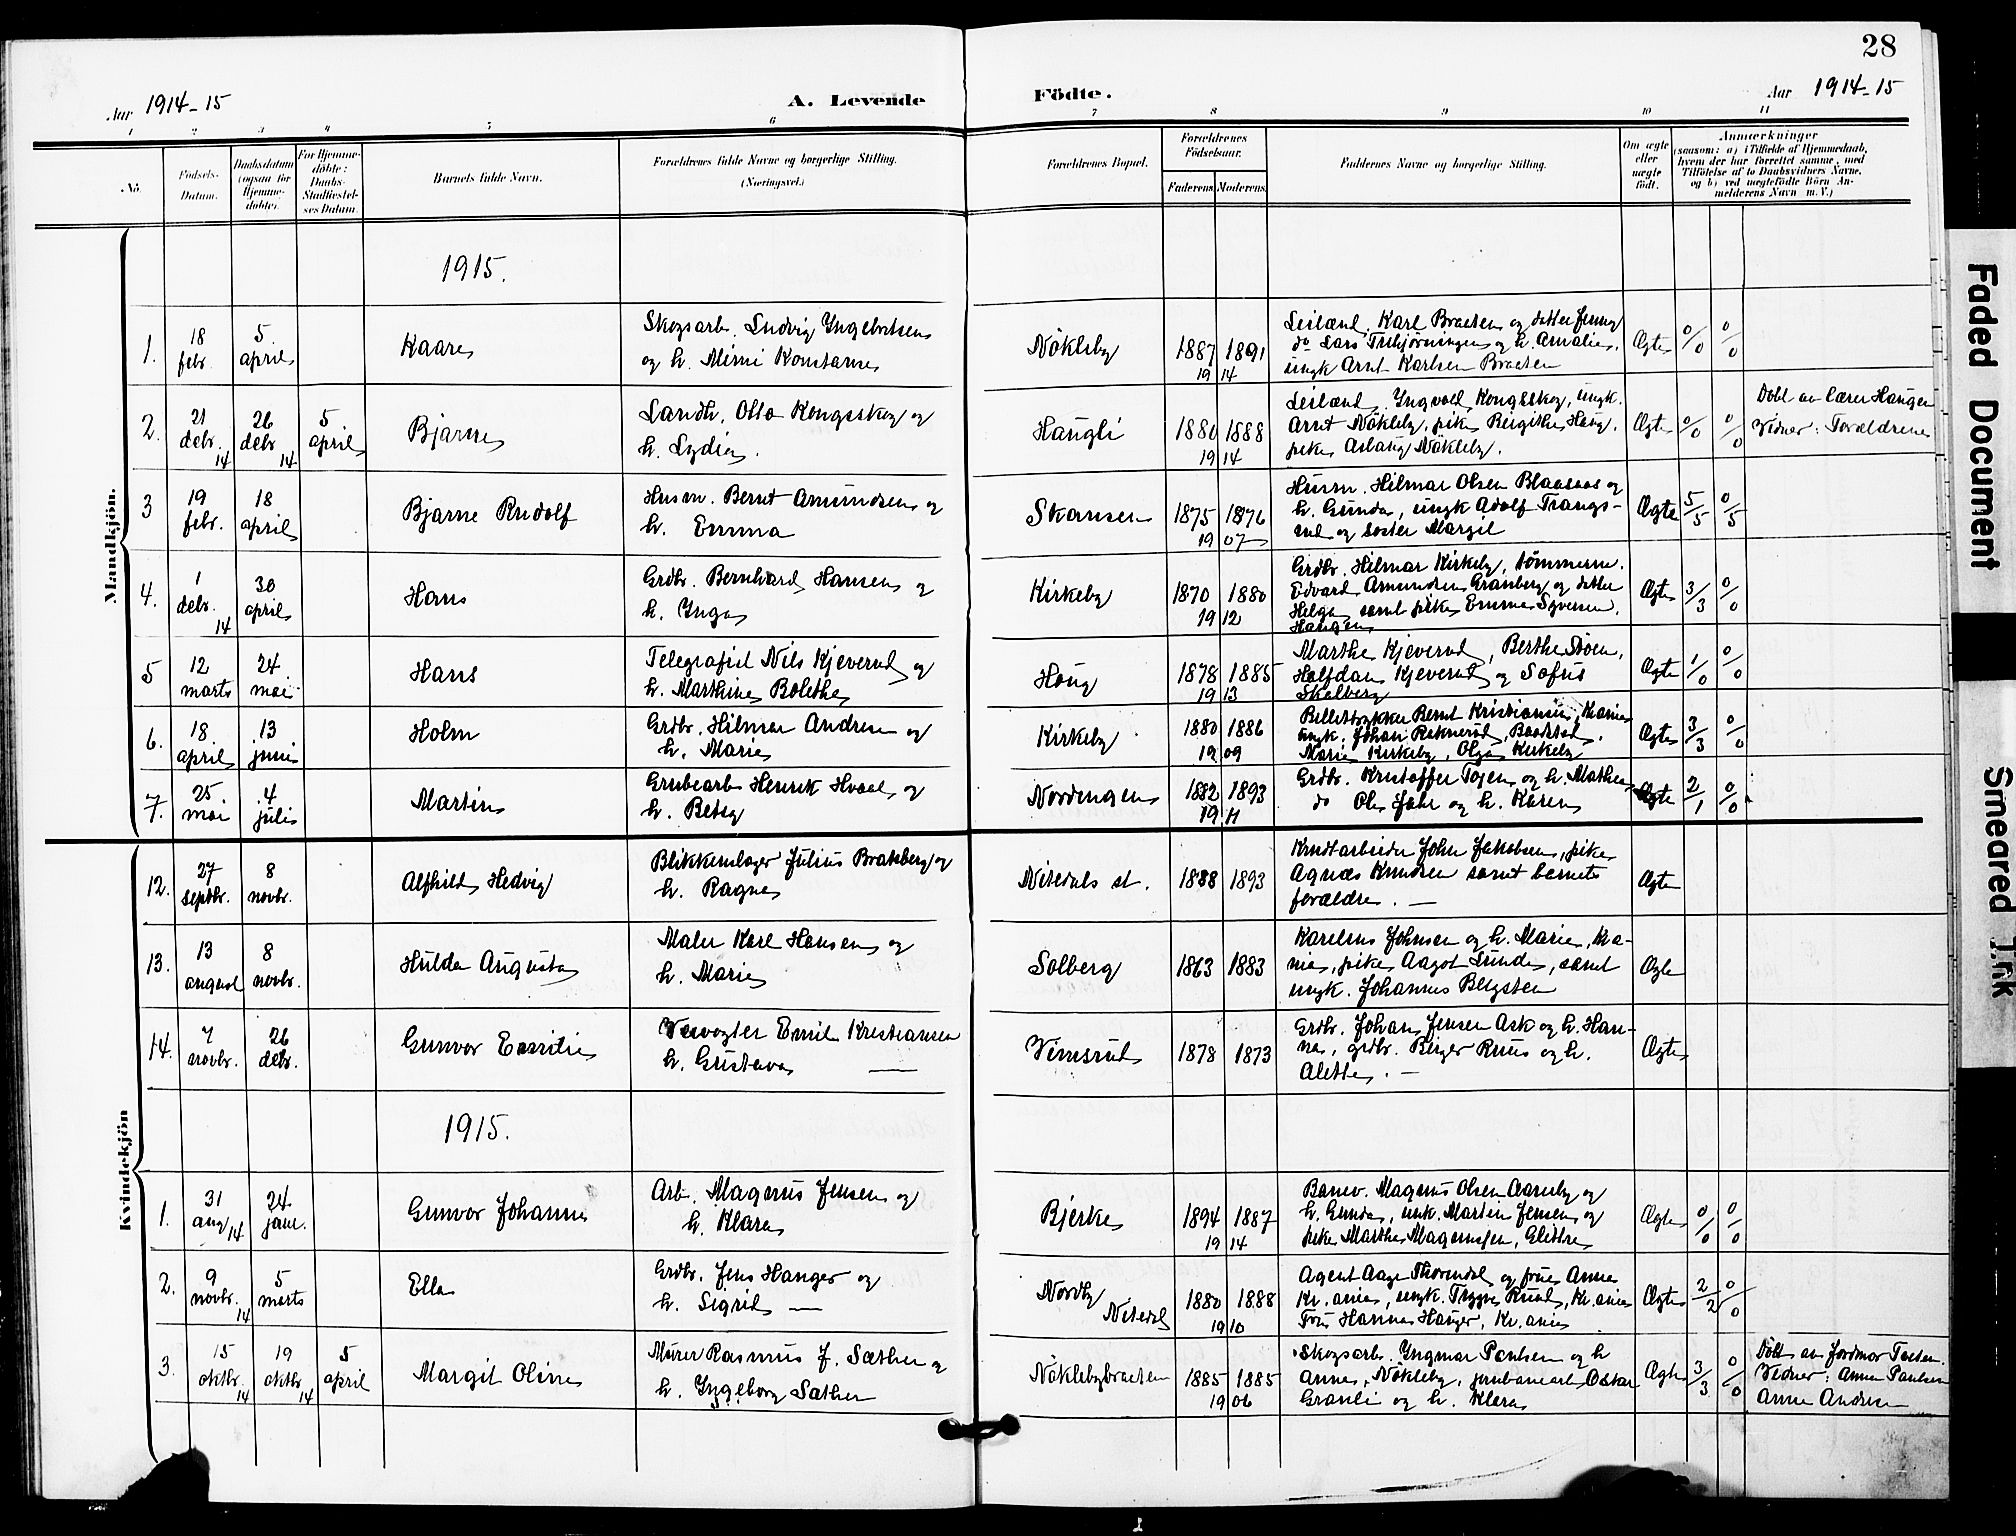 28
Aar 1914-15
A. Levende
Födte.
Aar 1914-15
1 2 3 4 5 6 7 8 9 10 11
No.
Födsels-
Datum.
Daabsdatum
(ogsaa for
Hjemme-
döbte).
For Hjemme-
döbte:
Daabs-
Stadfæstel-
ses Datum.
Barnets fulde Navn.
Forældrenes fulde Navne og borgerlige Stilling.
(Næringsvei.)
Forældrenes Bopæl.
Forældrenes
Födselsaar.
Faderens. Moderens.
Faddernes Navne og borgerlige Stilling.
Om ægte
eller
uægte
født.
Anmærkninger
(saasom: a) i Tilfælde af Hjemmedaab,
hvem der har forrettet samme, med
Tilføielse af to Daabsvidners Navne,
og b) ved uægtefödte Börn An-
melderens Navn m. V.)
Mandkjön.
1915.
1.
18
febr.
5.
april
Kaare
Skogsarb. Ludvig Yngebretsen
og h. Mimi Konstanse
Nökleby
1887 1891
19 14
Leilænd. Karl Braaten og datter Jenny
do Lars og h. Amalie,
ungk Arnt Karlsen Braaten
Ægte
0/0
0/0
2.
21
debr.
14
26
debr.
14
5
april
Bjarne
Landh. Otto Kongsskog og
h. Lydia.
Haugli
1880 1888
19 14
Leilænd. Yngvald Kongsskog, ungk.
Arnt Nökleby, pike Birgithe Haug,
pike Aslaug Nökleby.
Ægte
0/0
0/0
Döbt av lærer Haugen
Vidner: Forældrene
3
19
febr.
18
april
Bjarne Rudolf
Husm. Bernt Amundsen og
h. Emma
Skansen
1875 1876
19 07
Husm. Hilmar Olsen Blaasaas og
h. Gunda, ungk Adolf Trangs-
rud og söster Margit
Ægte
5/5
0/5
4.
1
debr.
14
30
april
Hans
Grdbr. Bernhard Hansen og
h. Ynga
Kirkeby
1870 1880
19 12
Grdbr. Hilmar Kirkeby, tömmerm.
Edvard Amundsen Granberg og datter
Helga samt pike Emma Syversen.
Haugen
Ægte
3/3
0/0
5
12
marts
24
mai
Hans
Telegrafist Nils Kjeverud og
h. Marthine Bolethe
Haug
1878 1885
19 13
Marthe Kjeverud, Berthe Stöen,
Halfdan Kjeverud og Sofus
Skalberg
Ægte
1/0
0/0
6.
18
april
13
juni
Holm
Grdbr. Hilmar Andresen og
h. Marie
Kirkeby
1880 1886
19 09
Bernt Kristiansen, Kr.ania
ungk. Johan
Marie Kirkeby, Olga Kirkeby
Ægte
3/3
0/0
7.
25
mai
4
juli
Martin
Grubearb Henrik Hvaal og
h. Betsy
Nordengen
1882 1893
19 11
Grdbr. Kristoffer Tøien og h. Mathea
do Ole Jahr og h. Karen
Ægte
2/1
0/0
Kvindekjön
12.
27
septbr.
8
novbr.
Alfhild Hedvig
Blikkenslager Julius Brakeberg og
h. Ragna
Nitedals st.
1888 1893
Krudtarbeider John Jakobsen, pike
Agnæs Knudsen samt barnets
forældre.
Ægte
13.
13
august
8
novbr.
Hulda Augusta
Maler Karl Hansen og
h. Marie
Solberg
1863 1883
Karelius Johnsen og h. Marie, Kra-
nia, pike Aagot Lunde, samt
ungk. Johannes Bergsten
Ægte
14.
7
novbr.
26
debr.
Gunvor Emilie
Veivogter Emil Kristiansen
h. Gustava
Vimsrud
1878 1873
Grdbr. Johan Jensen Ask og h. Han-
na, grdbr. Birger Ruus og h.
Alette.
Ægte
1915.
1.
31
aug 14
24
janr.
Gunvor Johanne
Arb. Magnus Jensen og
h. Klara
Bjerke
1894 1887
19 14
Banev. Magnus Olsen Aaneby og
h. Gunda, unk. Martin Jensen og
pike Marthe Magnussen, Glittre
Ægte
0/0
0/0
2.
9
novbr.
14
5
marts
Ella
Grdbr. Jens Hauger og
h. Sigrid
Nordby
Nitedal
1880 1888
19 10
Agent Aage Thorendal og frue Anna
Kr.ania, ungk. Trygve Ruud, Kr.ania
Frue Hanna Hauger, Kr.ania
Ægte
2/2
0/0
3.
15
oktbr.
14
19
oktbr.
14
5
april
Margit Oline
Murer Rasmus J. Sæther og
h. Yngeborg Sæther
Nöklebybraaten
1885 1885
19 06
Skogsarb. Yngmar Paulsen og h
Anna, Nökleby, jernbanearb. Oskar
Granli og h. Klara
Ægte
3/3
0/0
Döbt av Jordmor
Vidner: Anna Paulsen
Anna Andresen
Faded Document
Smeared Ink